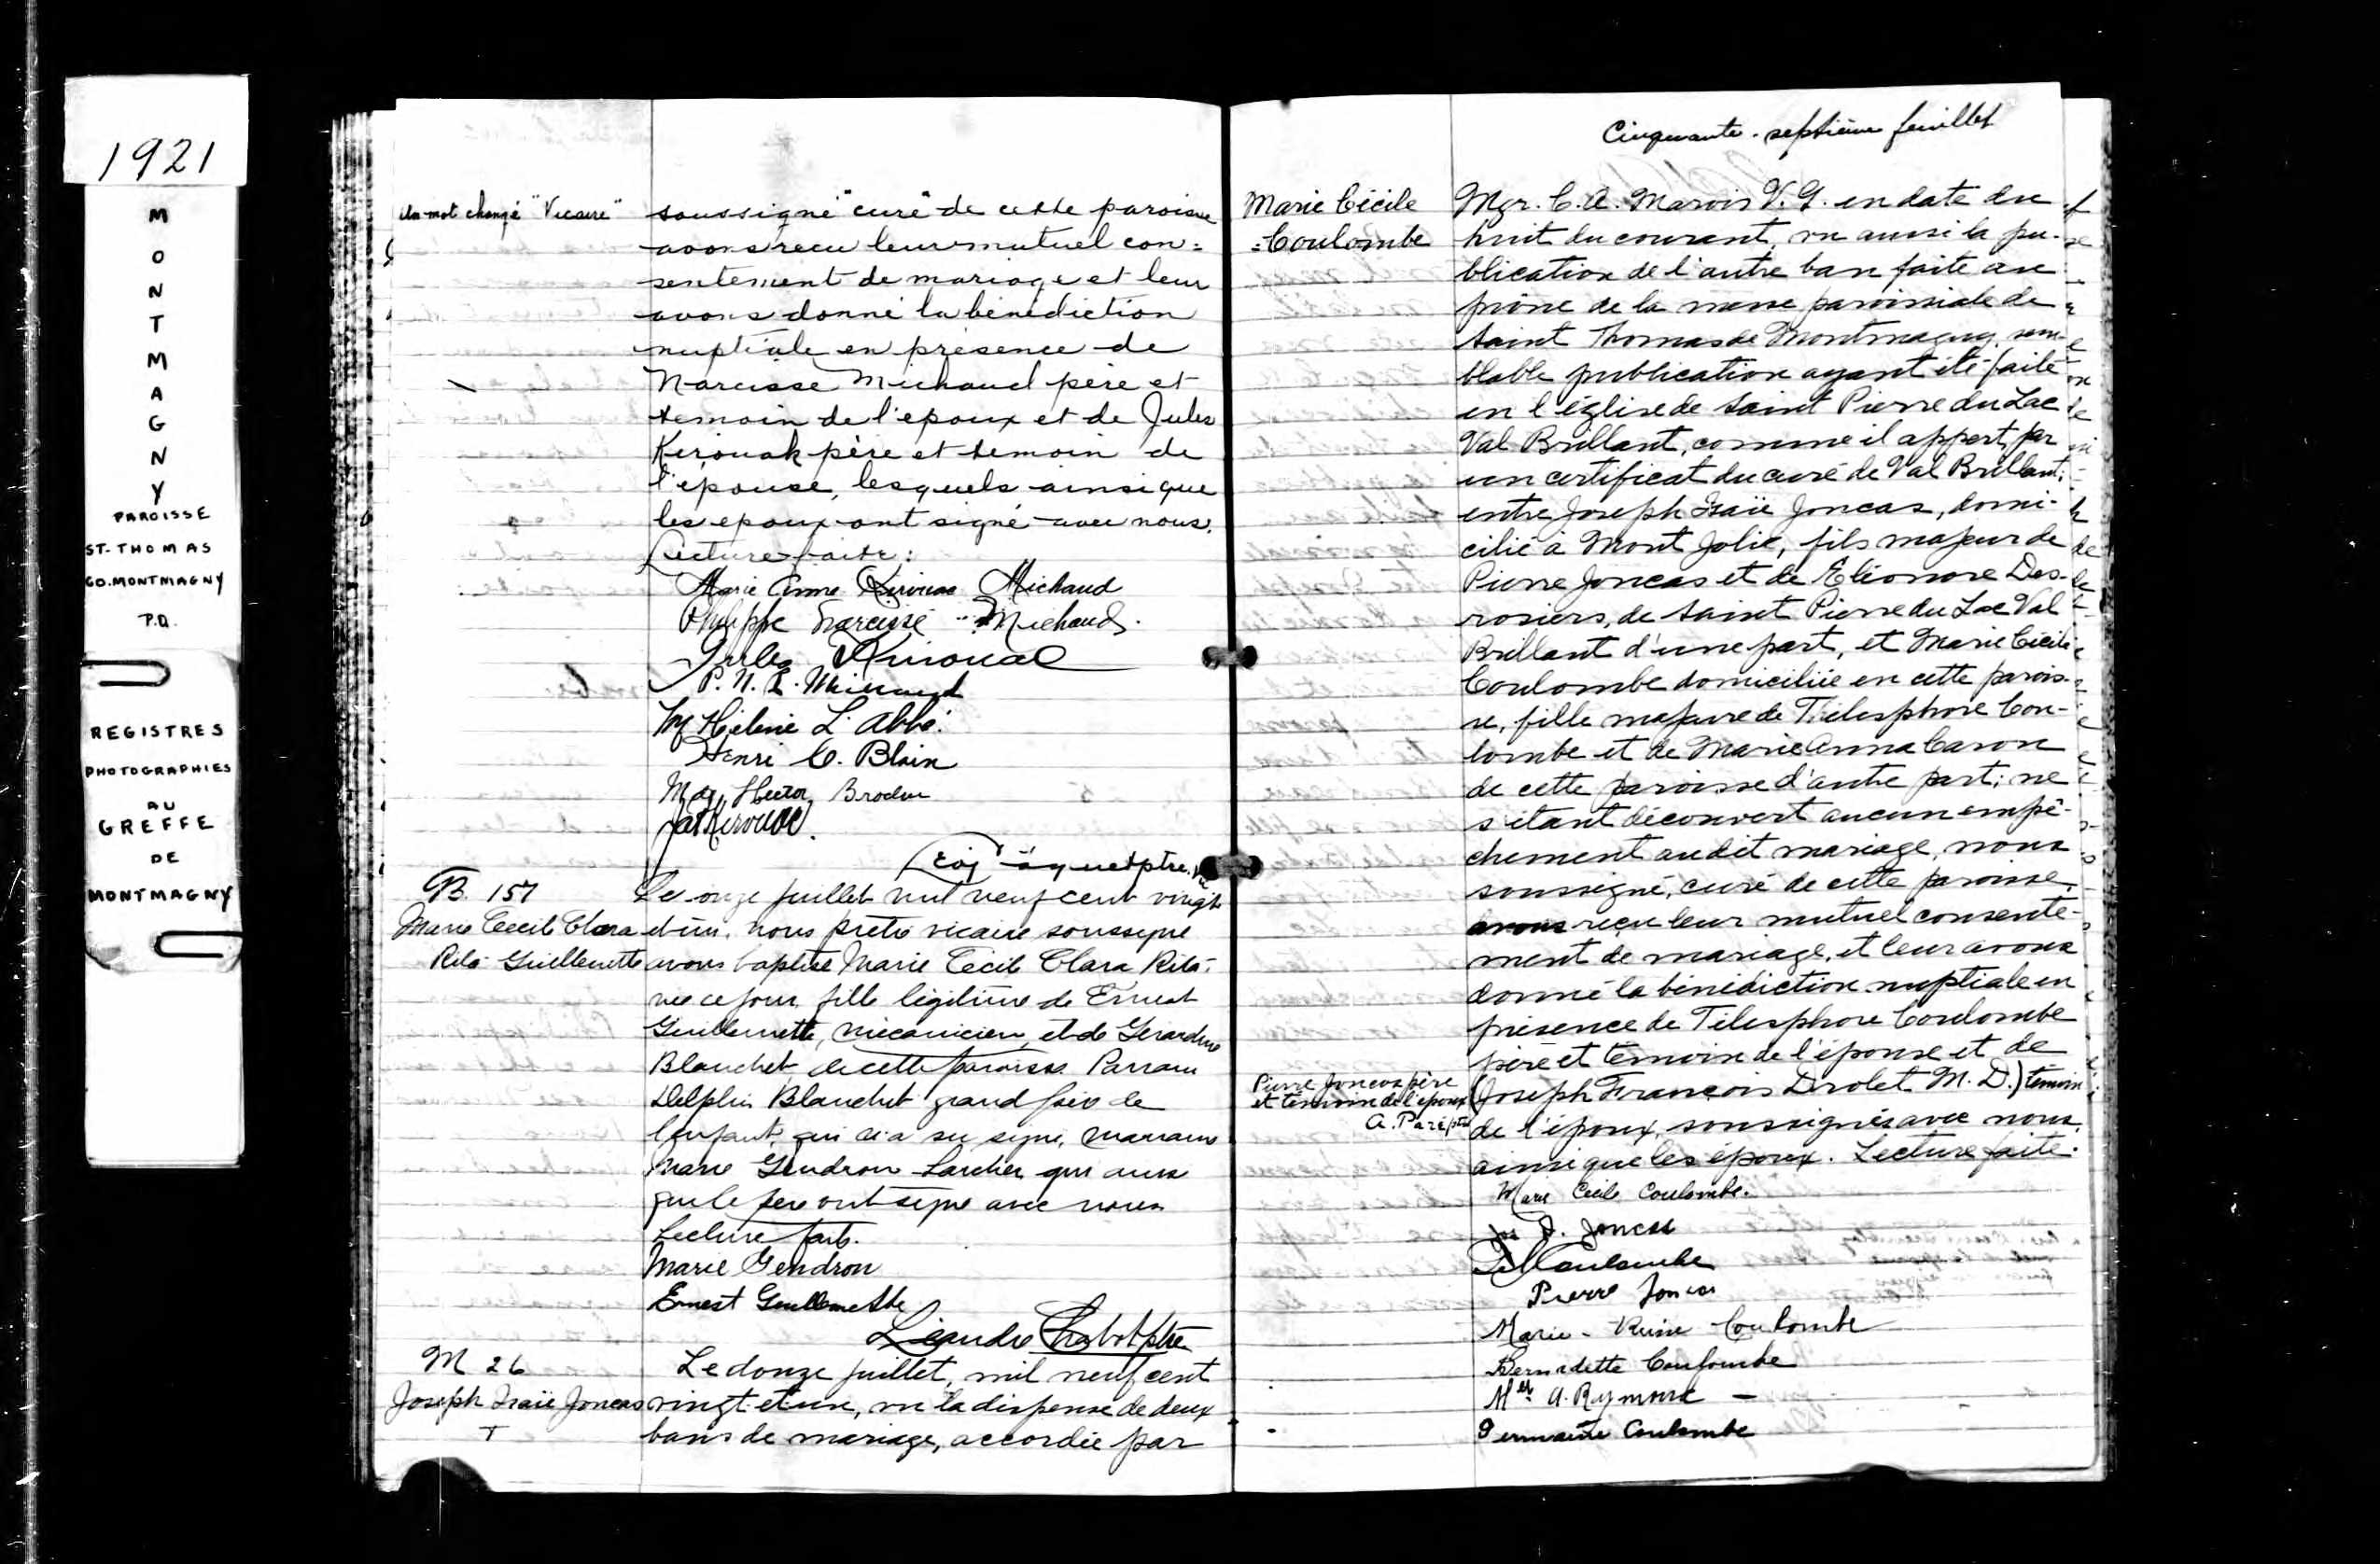 1921
MONTMAGNY
PAROISSE
ST-THOMAS
CO. MONTMAGNY
P.Q.
REGISTRES
PHOTOGRAPHIES
AU
GREFFE
DE
MONTMAGNY
Un mot changé "Vicaire"
soussigné "curé" de cette paroisse
avons reçu leur mutuel con=
sentement de mariage et leur
avons donné la bénédiction
nuptiale en présence de
Narcisse Michaud père et
temoin de l'epoux et de Jules
Kérouak père et temoin de
l'épouse, lesquels ainsi que
les epoux ont signé avec nous.
Lecture faite:
Marie Anne Kirouac Michaud
Philippe Narcisse Michaud.
Jules Kirouac
P. N. E. Michaud
M Hélène L'Abbé
Henri C. Blain
Hector Brodeur
Kerouac
ptre.
B. 157
Marie Cecile Clara
Rita Guillemette
Le onze juillet mil neuf cent vingt
et un, nous prêtre vicaire soussigné
avons baptisé Marie Cécile Clara Rita,
née ce jour, fille légitime de Ernest
Guillemette, mécanicien, et de Gerardine
Blanchet de cette paroisse. Parrain
Delphis Blanchet grand père de
l'enfant, qui n'a su signer, marraine
Marie Gendron Larcher qui ainsi
que le père ont signé avec nous
Lecture faite.
Marie Gendron
Ernest Guillemette
Léandre Chabot ptre
M 26
Joseph Isaïe Joncas
T
Le douze juillet, mil neuf cent
vingt et un, vu la dispense de deux
bans de mariage, accordée par
Cinquante-septième feuillet
Marie Cécile
=Coulombe
Mgr. C. A. Marois V. G. en date du
huit du courant, vu aussi la pu-
blication de l'autre ban faite au
prône de la messe paroissiale de
Saint Thomas de Montmagny, sem-
blable publication ayant été faite
en l'église de Saint Pierre du Lac
Val Brillant, comme il appert par
un certificat du curé de Val Brillant;
entre Joseph Isaïe Joncas, domi-
cilié à Mont Jolie, fils majeur de
Pierre Joncas et de Eléonore Des-
rosiers, de Saint Pierre du Lac Val
Brillant d'une part, et Marie Cécile
Coulombe domiciliée en cette parois-
se, fille majeure de Thélesphore Cou-
lombe et de Marie Anna Caron
de cette paroisse d'autre part; ne
s'étant découvert aucun empê-
chement audit mariage, nous
soussigné, curé de cette paroisse,
avons reçu leur mutuel consente-
ment de mariage, et leur avons
donné la bénédiction nuptiale en
présence de Télesphore Coulombe
père et témoin de l'épouse et de
Pierre Joncas père
et témoin de l'époux
A. Paré ptre
(Joseph François Drolet M. D.) témoin
de l'époux, soussignés avec nous,
ainsi que les époux. Lecture faite.
Marie Cécile Coulombe.
Jos I. Joncas
Coulombe
Pierre Joncas
Marie-Reine Coulombe
Bernadette Coulombe
A. Rymond
Germaine Coulombe